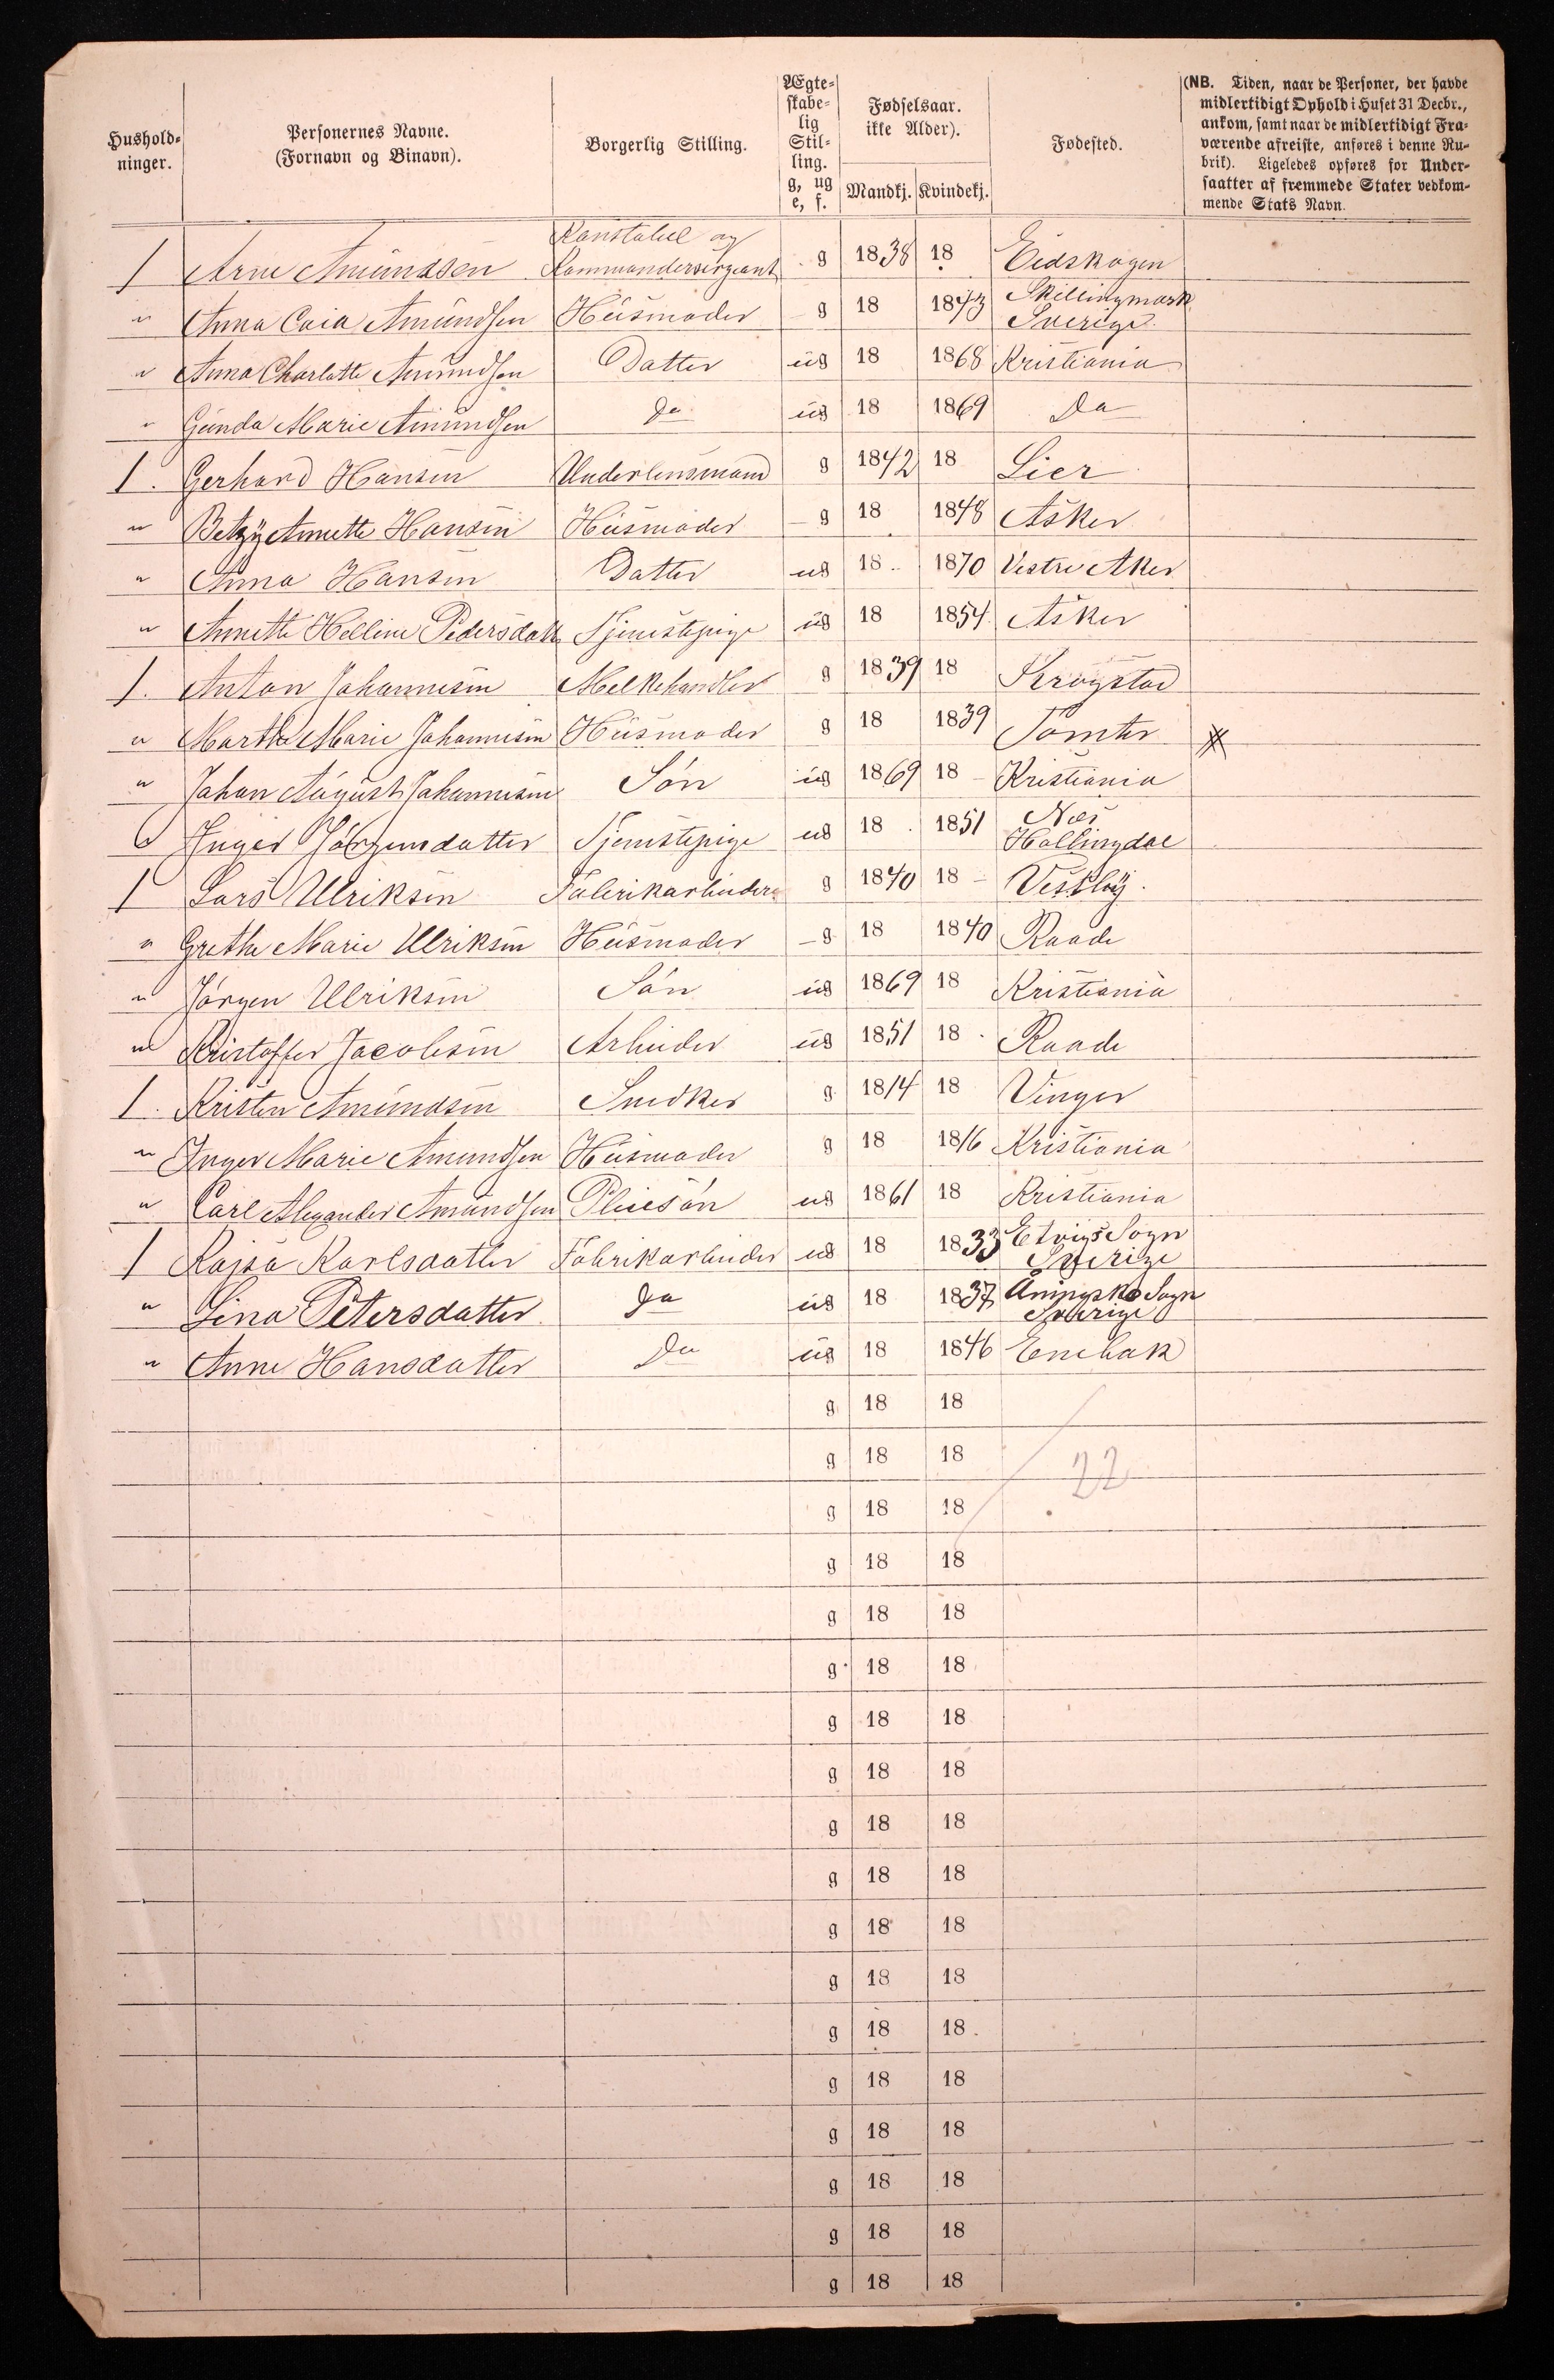 Hushold-
ninger.
Personernes Navne.
(Fornavn og Binavn).
Borgerlig Stilling.
Ægte-
skabe-
lig
Stil-
ling.
g, ug
e, f.
Fødselsaar.
ikke Alder).
Mandkj. Kvindekj.
Fødested.
(NB. Tiden, naar de Personer, der havde
midlertidigt Ophold i Huset 31 Decbr.,
ankom, samt naar de midlertidigt Fra-
værende afreiste, anføres i denne Ru-
brik). Ligeledes opføres for Under-
saatter af fremmede Stater vedkom-
mende Stats Navn.
Konstabel og
1 Arne Amundsen Kommandersergeant g 1838 18 Eidskogen
" Anna Caia Amundsen Husmoder g 18 1843 Skillingmark
Sverige.
" Anna Charlotte Amundsen Datter ug 18 1868 Kristiania
" Gunda Marie Amundsen Do ug 18 1869 Do
1. Gerhard Hansen Underlensmand g 1842 18 Lier
" Betzy Annette Hansen Husmoder g 18 1848 Asker
" Anna Hansen Datter ug 18 1870 Vestre Aker
" Annette Helline Pedersdatt Tjenestepige ug 18 1854 Asker
1. Anton Johannesen Melkehandler g 1839 18 Krogstad
" Marthe Marie Johannesen Husmoder g 18 1839 Tomter
" Johan August Johannesen Søn ug 1869 18 Kristiania
Inger Jørgensdatter Tjenestepige ug 18 1851 Næs
Hallingdal
1 Lars Ulriksen Fabrikarbeider g 1840 18 Vestby.
" Grethe Marie Ulriksen Husmoder g 18 1840 Raade
" Jørgen Ulriksen Søn ug 1869 18 Kristiania
" Kristoffer Jacobsen Arbeider ug 1851 18 Raade
1. Kristen Amundsen Snedker g 1814 18 Vinger
" Inger Marie Amundsen Husmoder g 18 1816 Kristiania
" Carl Alexander Amundsen Pleiesøn ug 1861 18 Kristiania
1 Kajsa Karlsdatter Fabrikarbeider ug 18 1833 Sogn
Sverige
" Lina Petersdatter Do ug 18 1837 Sogn
Sverige
" Anne Hansdatter Do ug 18 1846 Enebak
g 18 18
g 18 18 22
g 18 18
g 18 18
g 18 18
g 18 18
g 18 18
g 18 18
g 18 18
g 18 18
g 18 18
g 18 18
g 18 18
g 18 18
g 18 18
g 18 18
g 18 18
g 18 18